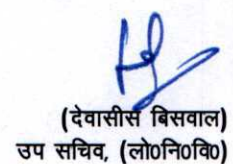 (देवासीस बिसवाल)
उप सचिव, (लो0नि0वि0)